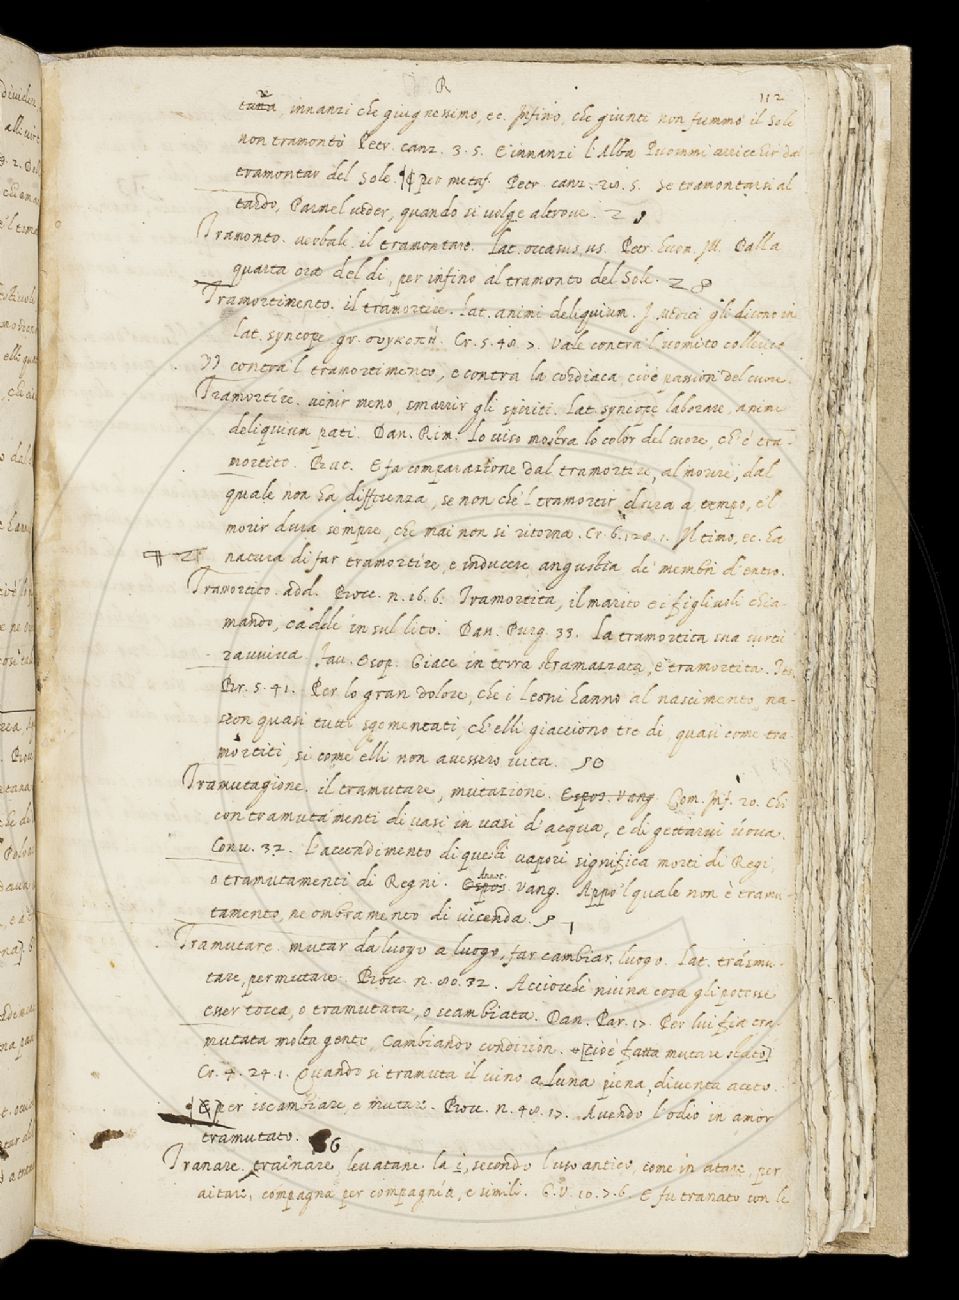 R
112
innanzi che giugnessimo, ec. Infino, che giunti non fummo il Sole
non tramontò Petr. canz. 3. 5. E innanzi l'Alba
tramontar del Sole. per metaf. Petr. canz. 20. 5. Se tramontarsi al
tardo, Parmel veder, quando si volge altrove. 2
Tramonto. verbale. il tramontare. Lat. occasus, us. Petr. Dalla
quarta ora del di, per infino al tramonto del Sole. 28
Tramortimento. il tramortire. Lat. animi deliquium. I Medici gli dicono in
Lat. syncope gr. συγκοπή. Cr. 5. 48. 7. Vale contra l'vomito collerico
contra 'l tramortimento, e contra la cordiaca, cioè passion del cuore.
Tramortire. venir meno, smarrir gli spiriti. Lat. syncope laborare, animi
deliquium pati. Dan. Rim. Lo viso mostra lo color del cuore, ch'è tra-
mortito. But. E fa comparazione dal tramortire, al morire, dal
quale non ha differenza, se non che 'l tramortir dura a tempo, e 'l
morir dura sempre, che mai non si ritorna. Cr. 6. 128. 1. Il timo, ec. ha
natura di far tramortire, e inducere angustia de' membri d'entro.
Tramortito. add. Bocc. n. 16. 6. Tramortita, il marito e i figliuoli chia-
mando, cadde in sul lito. Dan. Purg. 33. La tramortita sua virtù
ravviva. Fav. Esop. Giace in terra stramazzata, e tramortita.
Br. 5. 41. Per lo gran dolore, che i leoni hanno al nascimento, na-
scon quasi tutti sgomentati, ch'elli giacciono tre dì, quasi come tra
mortiti, si come elli non avessero vita. 50
Tramutagione. il tramutare, mutazione. Espos. Vang. Com. Inf. 20. Chi
con tramutamenti di vasi in vasi d'acqua, e di gettarvi uova.
Conv. 32. L'accendimento di questi vapori significa morti di Regi,
o tramutamenti di Regni. Espos. Vang. Appo 'l quale non è tramu-
tamento, ne ombramento di vicenda. 51
Tramutare. mutar da luogo a luogo, far cambiar luogo. Lat. trasmu-
tare, permutare. Bocc. n. 80. 32. Acciocchè niuna cosa gli potesse
esser tocca, o tramutata, o scambiata. Dan. Par. 17. Per lui fia tra-
mutata molta gente, Cambiando condizion. [cioè fatta mutare stato]
Cr. 4. 24. 1. Quando si tramuta il vino a luna piena, diventa aceto.
per iscambiare, e mutar. Bocc. n. 48. 17. Avendo l'odio in amor
tramutato. 56
Tranare. trainare, levatane la i, secondo l'uso antico, come in atare, per
aitare, compagna per compagnia, e simili. G. V. 10. 7. 6. E fu tranato con le